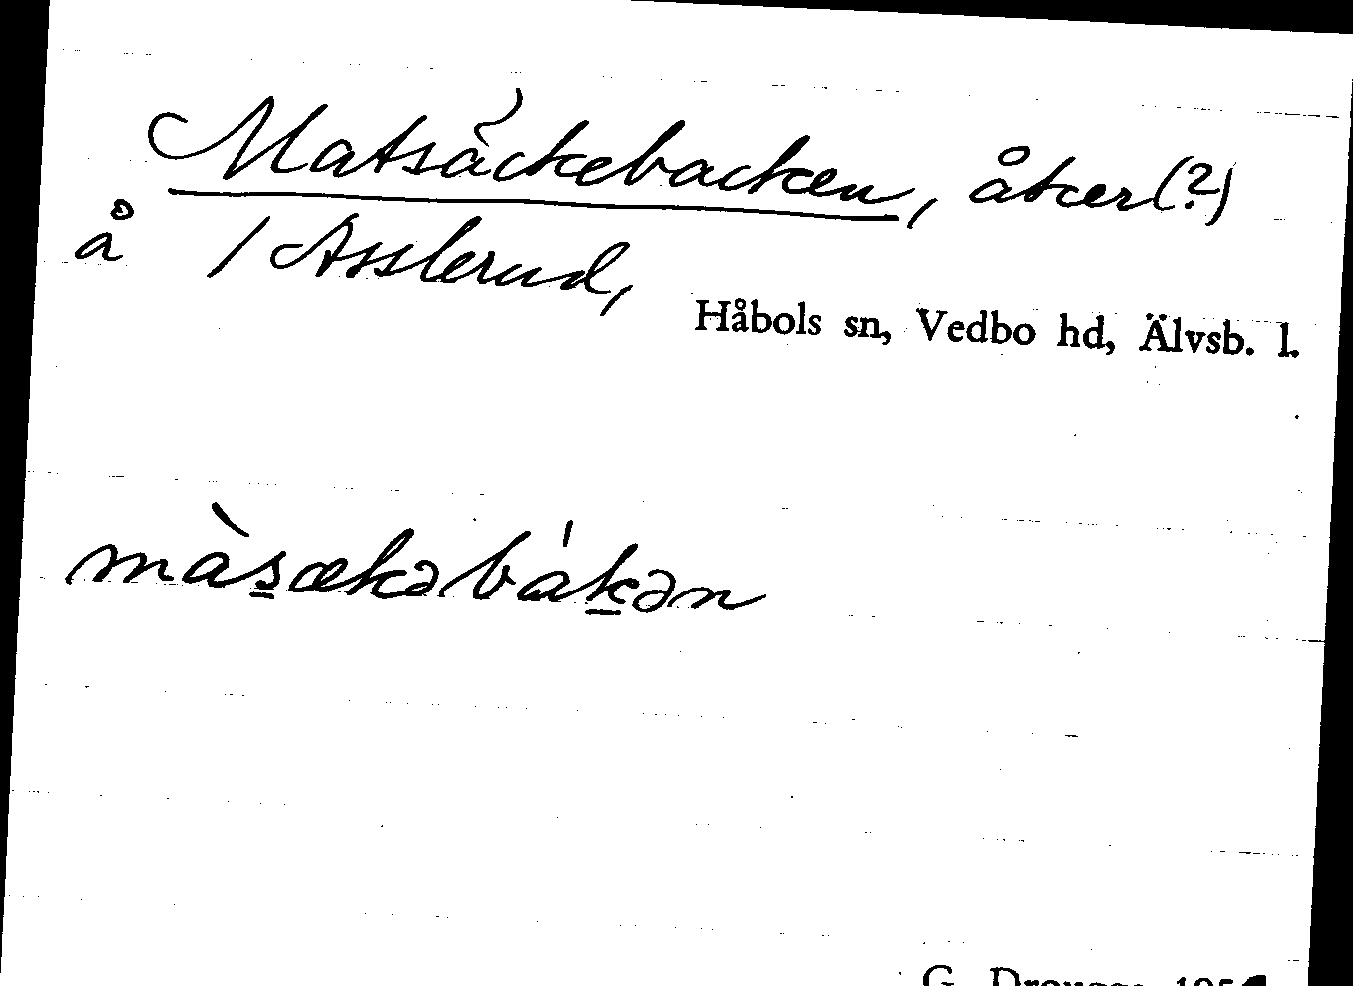 Matsäckebacken, åker(?)
å / Asslerud,
Håbols sn, Vedbo hd, Älvsb. l.
màs̲ækəbák̲ən
G.